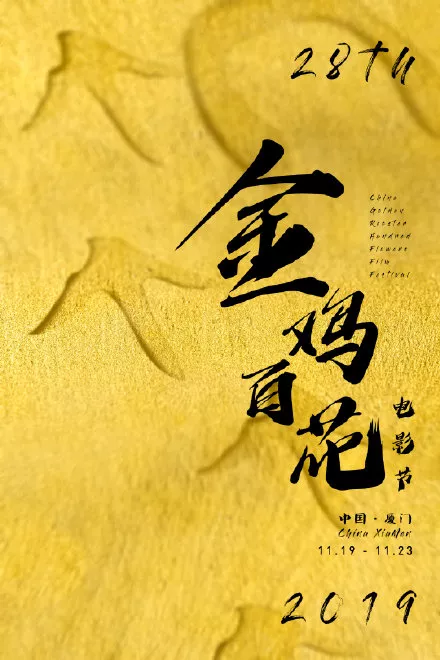 28th
金鸡百花
China
Golden
Rooster
Hundred
Flowers
Film
Festival
电影节
中国·厦门
China XiaMen
11.19 - 11.23
2019